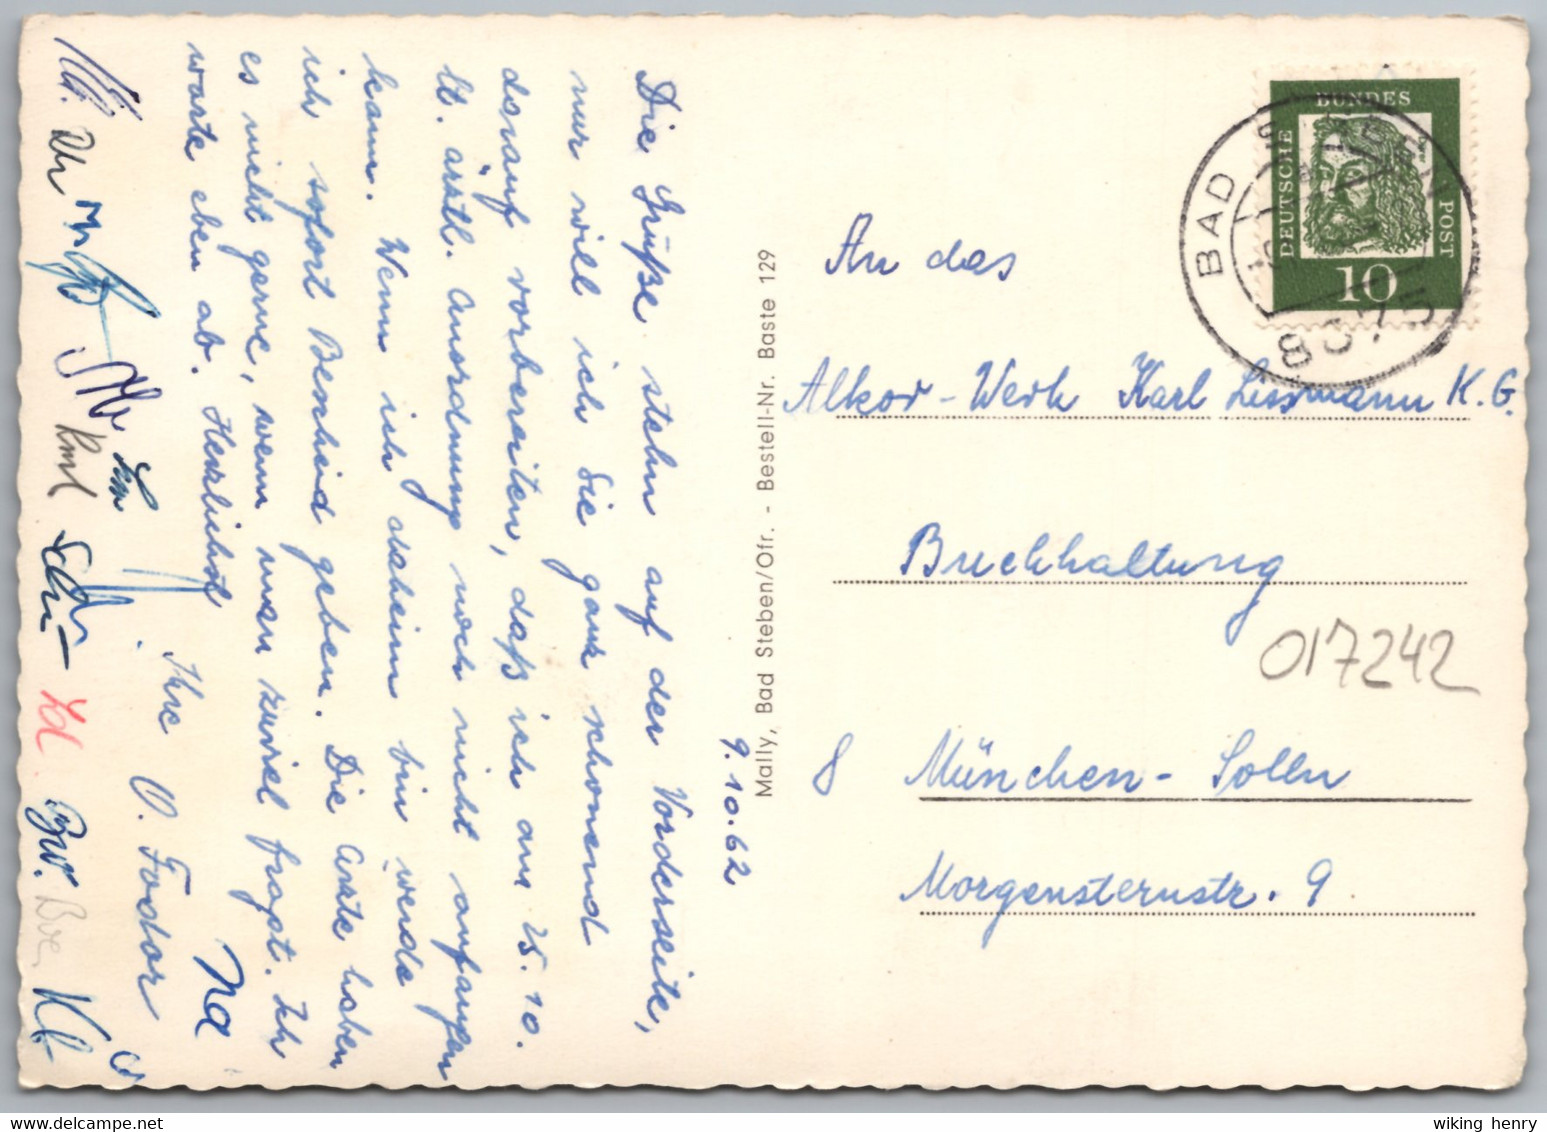 9.10.62
Die Grüße stehn auf der Vorderseite,
nur will ich Sie ganz schonend
darauf vorbereiten, daß ich am 25.10.
lt. ärztl. Anordnung noch nicht anfangen
kann. Wenn ich daheim bin werde
ich sofort Bescheid geben. Die Ärzte haben
es nicht gerne, wenn man zuviel fragt. Ich
warte eben ab. Herzlichst
Ihre O. Fodor
Mally, Bad Steben/Ofr. - Bestell-Nr. Baste 129
DEUTSCHE BUNDESPOST
10
BAD STEBEN
8675
An das
Alkor-Werk Karl Lissmann K.G.
Buchhaltung
017242
8 München-Solln
Morgensternstr. 9
wiking henry